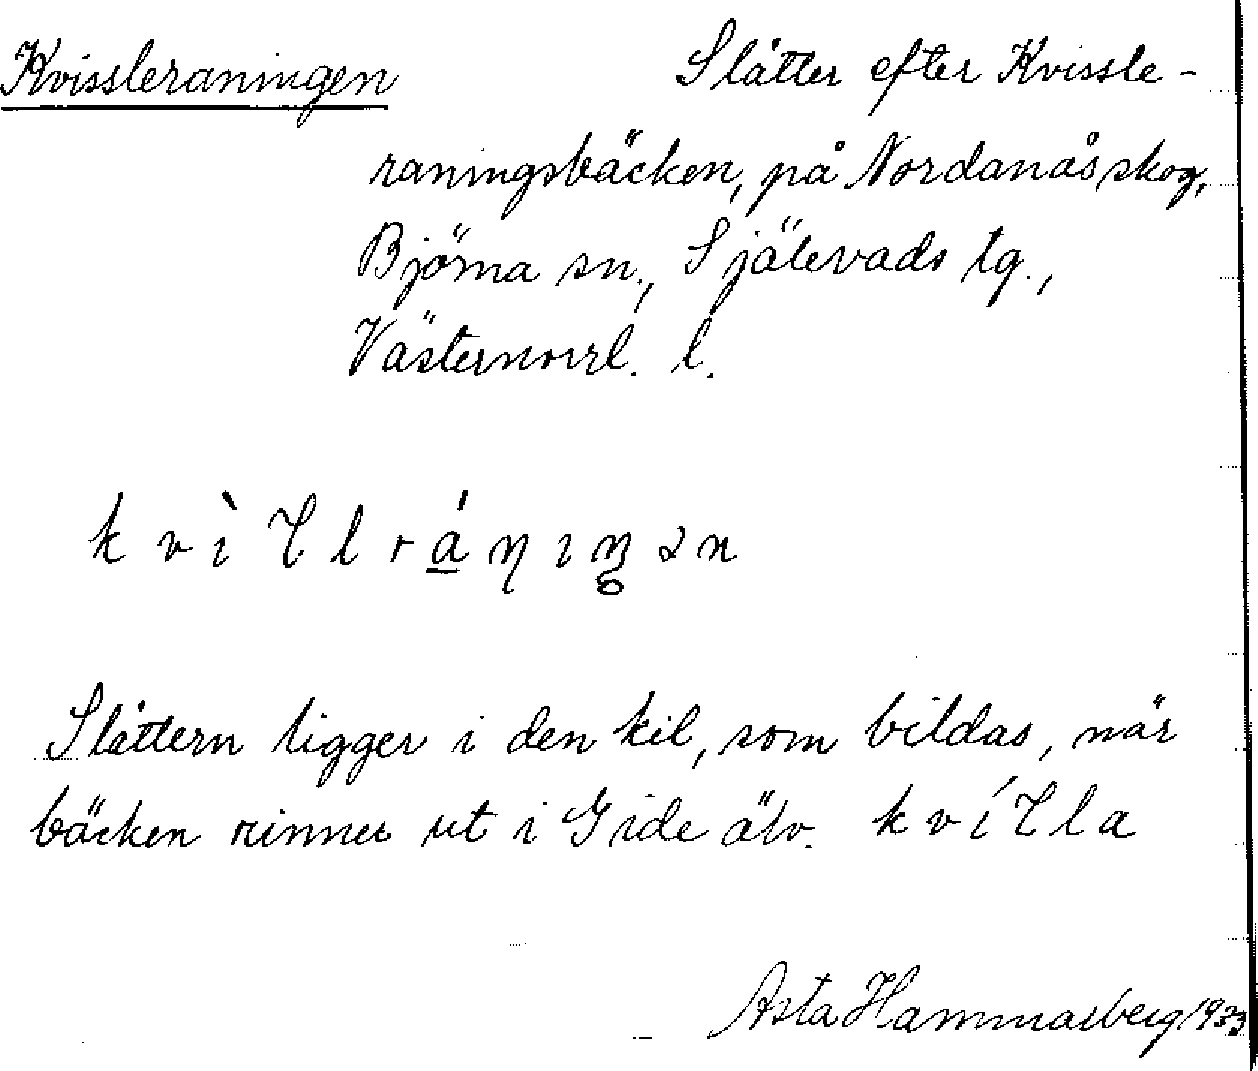 Kvissleraningen Slåtter efter Kvissle-
raningsbäcken, på Nordanås skog,
Björna sn., Själevads tg.,
Västernorrl. l.
Slåttern ligger i den kil, som bildas, när
bäcken rinner ut i Gide älv.
Asta Hammarberg 1933